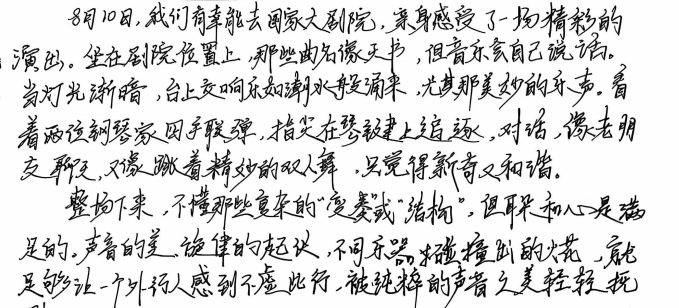 8月10日，我们有幸能去国家大剧院，亲身感受了一场精彩的
演出。坐在剧院位置上，那些曲名像天书，但音乐会自己说话。
当灯光渐暗，台上交响乐如潮水般涌来，尤其那美妙的乐声。看
着两位钢琴家四手联弹，指尖在琴键上追逐，对话，像老明
友聊天，又像跳着精妙的双人舞，只觉得新奇又和谐。
整场下来，不懂那些复杂的“变奏”或“结构”，但耳朵和心是满
足的。声音的美、旋律的起伏，不同乐器碰撞出的火花，就
足够让一个外行人感到不虚此行，被纯粹的声音之美轻轻抚